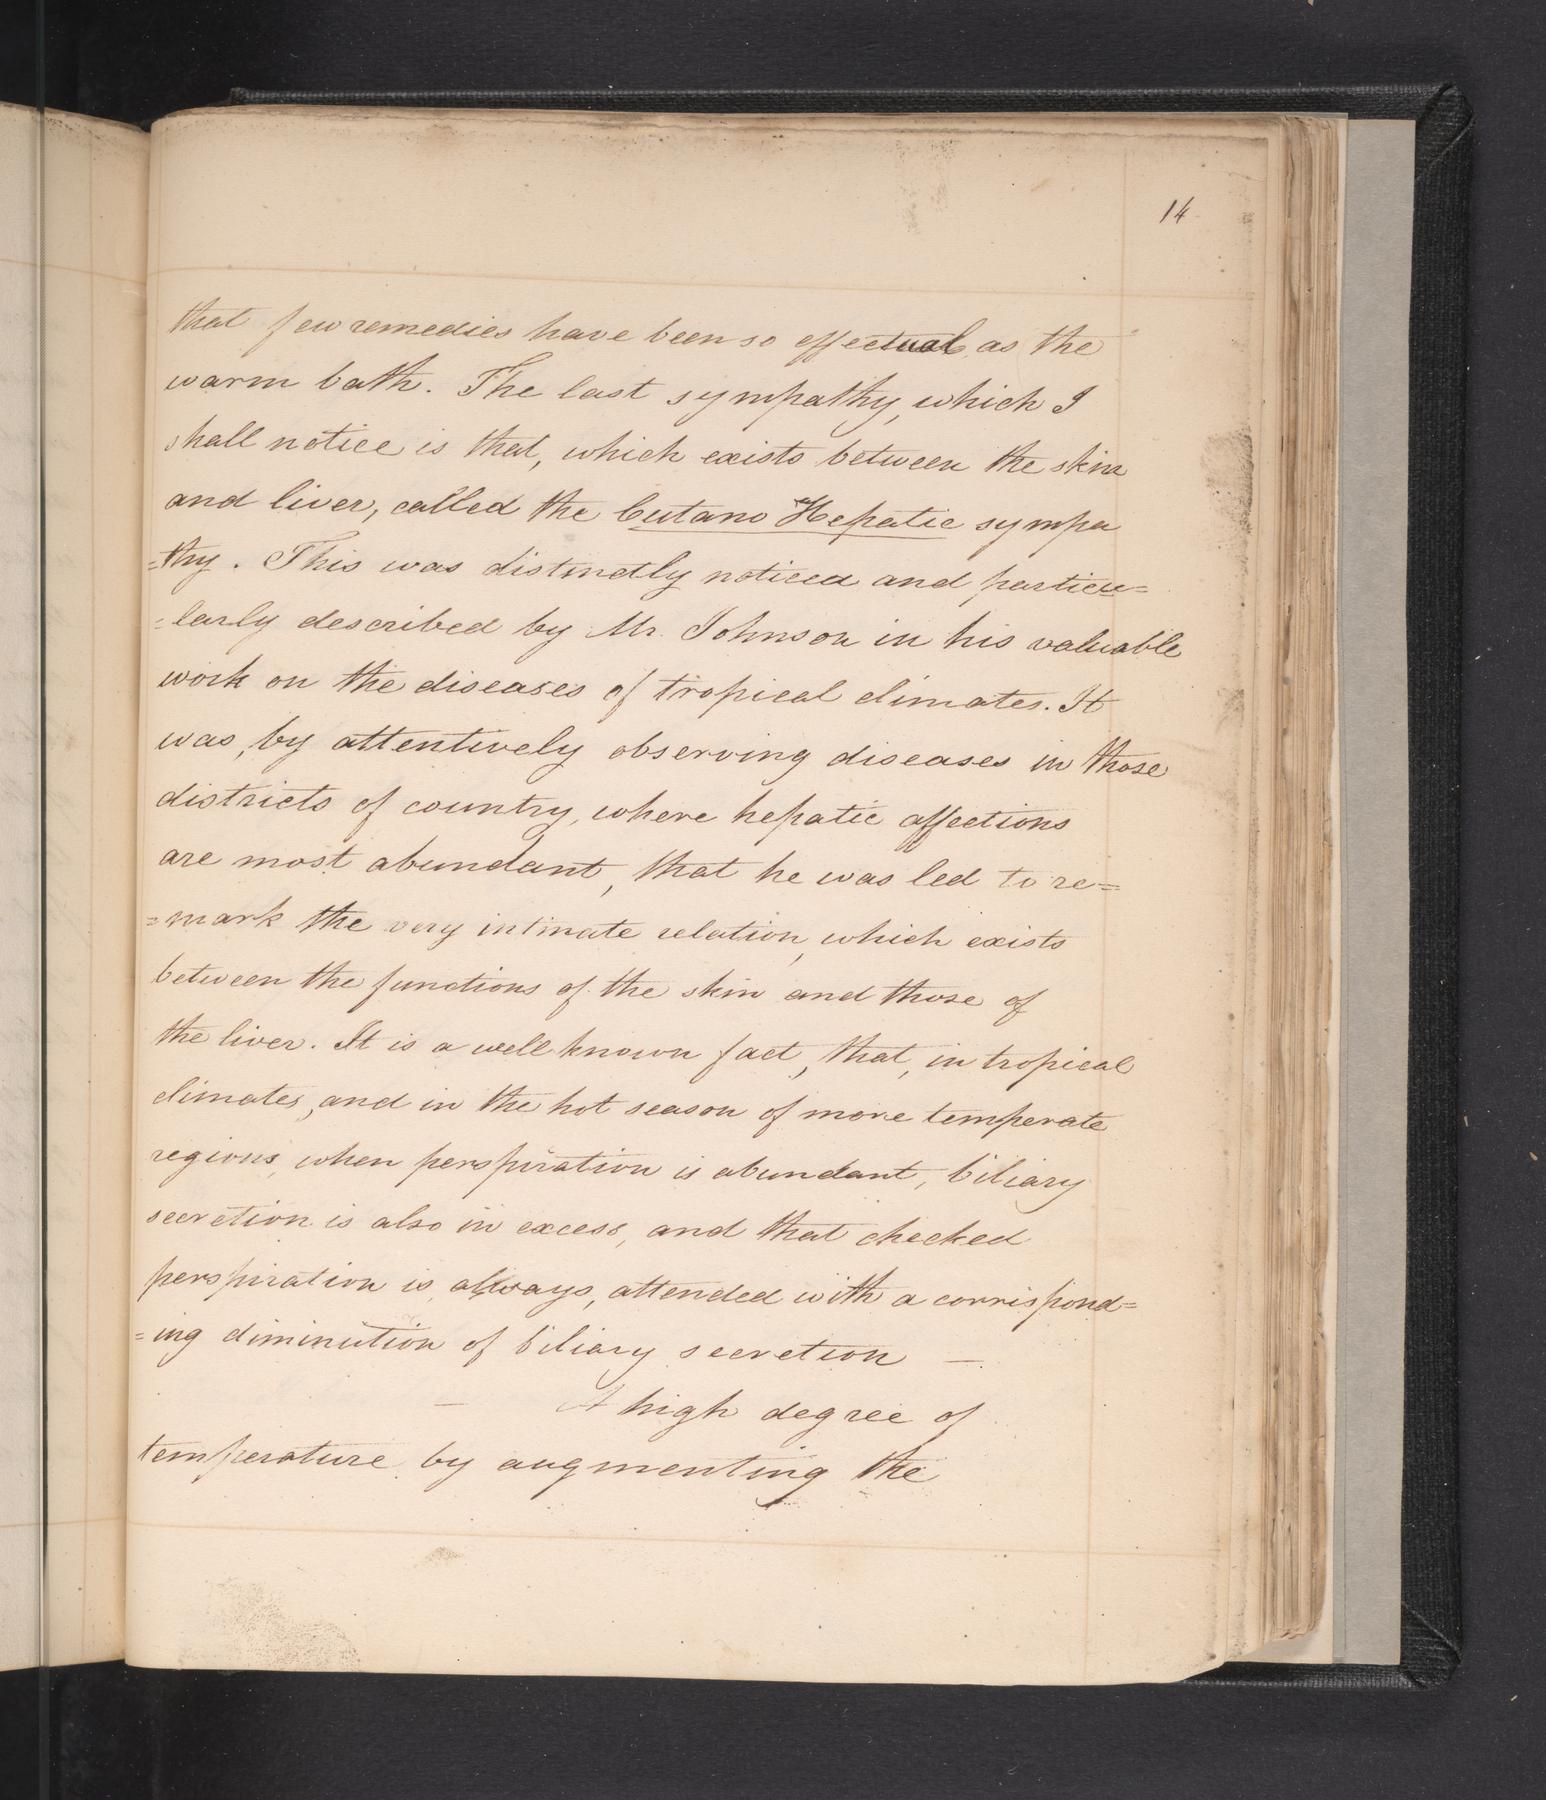 14
that few remedies have been so effectual as the
warm bath. The last sympathy, which I
shall notice is that, which exists between the skin
and liver, called the Cutano Hepatic sympa
=thy. This was distinctly noticed and particu=
=larly described by Mr. Johnson in his valuable
work on the diseases of tropical climates. It
was, by attentively observing diseases in those
districts of country, where hepatic affections
are most abundant, that he was led to re=
=mark the very intimate relation, which exists
between the functions of the skin and those of
the liver. It is a well known fact, that, in tropical
climates, and in the hot season of more temperate
regions, when perspiration is abundant, biliary
secretion is also in excess, and that checked
perspiration is always, attended with a corrispond=
=ing diminution of biliary secretion —
— A high degree of
temperature by augmenting the